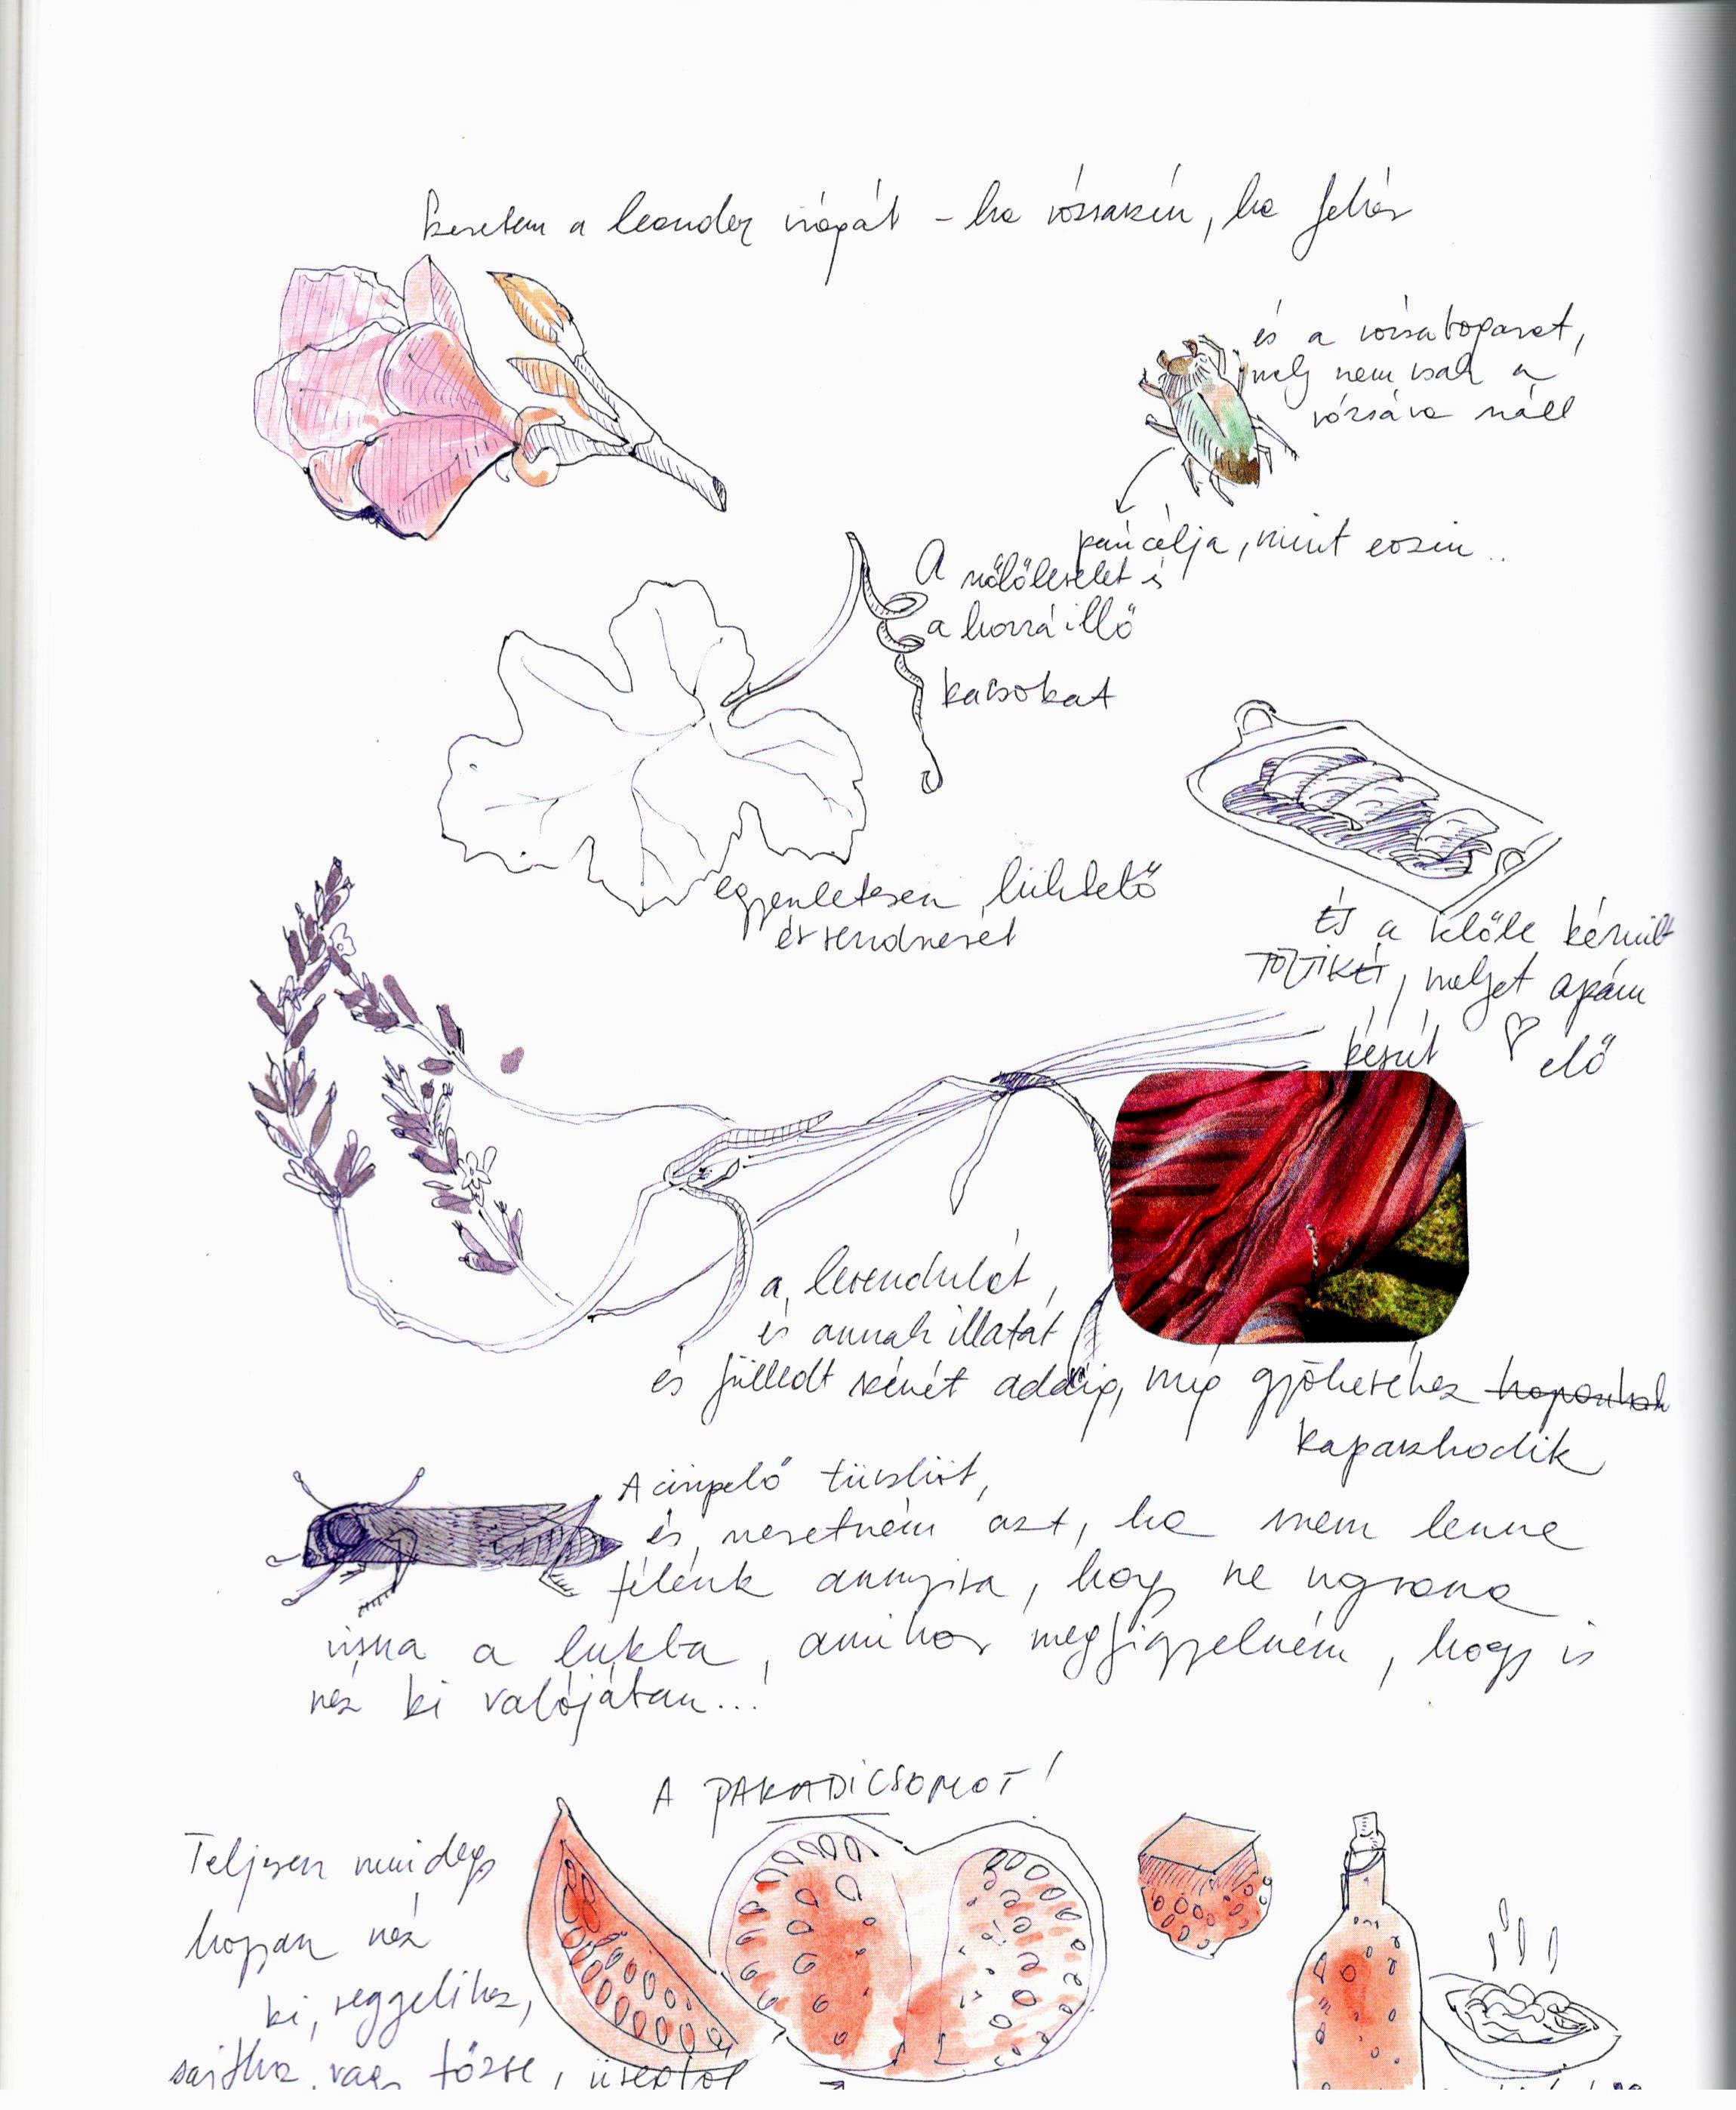 Szeretem a leander virágát – ha rózsaszín, ha fehér
és a rózsabogarat,
mely nem csak a
rózsára száll
páncélja, mint eozin..
A szőlőlevelet és
a hozzá illő
kacsokat
egyenletesen lüktető
érrendszerét
És a belőle készült
TÖLTIKÉT, melyet apám
készít ♡ elő
a levendulát,
és annak illatát
és fülledt színét addig, míg gyökeréhez
kapaszkodik
A ciripelő tücsköt,
és szeretném azt, ha nem lenne
félénk annyira, hogy ne ugrana
vissza a lukba, amikor megfigyelném, hogy is
néz ki valójában...!
A PARADICSOMOT!
Teljesen mindegy
hogyan néz
ki, reggelihez,
sajthoz, vagy főzve,